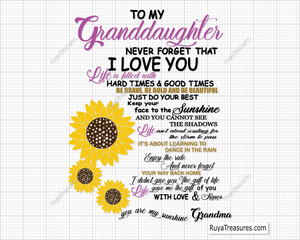 TO MY
Granddaughter
NEVER FORGET THAT
I LOVE YOU
Life is filled with
HARD TIMES & GOOD TIMES
BE BRAVE, BE BOLD AND BE BEAUTIFUL
JUST DO YOUR BEST
Keep your
face to the Sunshine
AND YOU CANNOT SEE
THE SHADOWS
Life isn't about waiting for
the storm to pass
IT'S ABOUT LEARNING TO
DANCE IN THE RAIN
Enjoy the ride
And never forget
YOUR WAY BACK HOME
I didn't give you The gift of life
Life gave me the gift of you
WITH LOVE &
you are my sunshine Grandma
RuyaTreasures.com